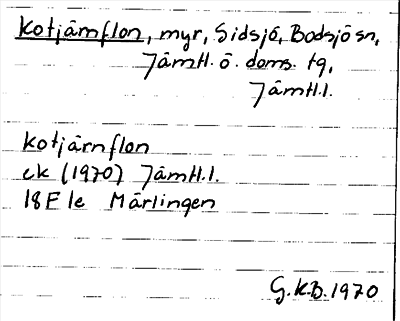 Kotjärnflon, myr, Sidsjö, Bodsjö sn,
Jämtl. ö. doms. tg,
Jämtl.l.
Kotjärnflon
ek (1970) Jämtl.l.
18F 1e Märlingen
G.K.B. 1970